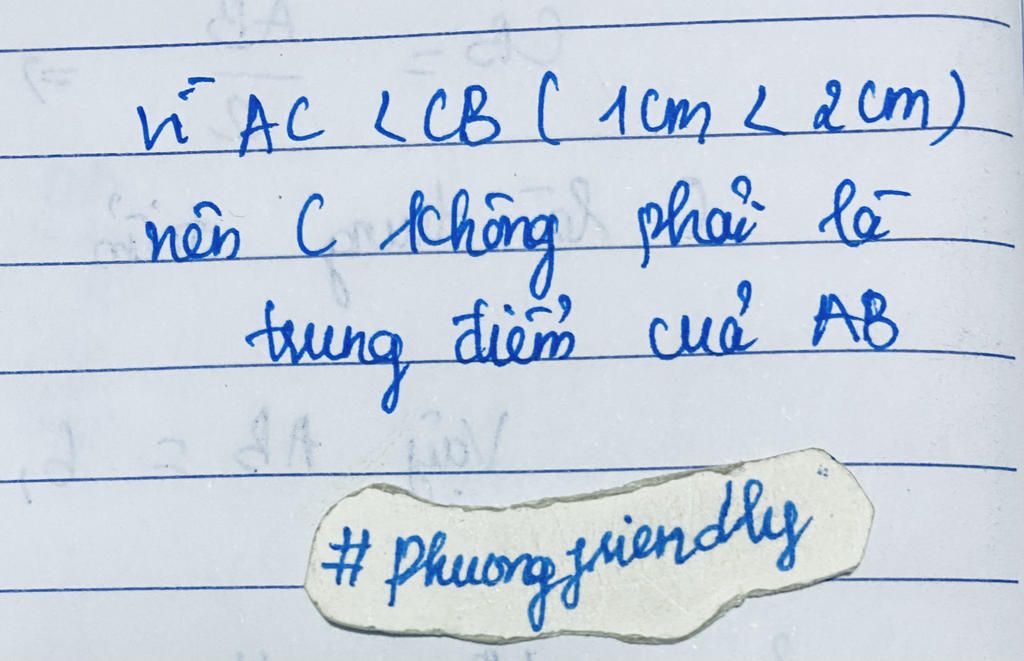 vì AC < CB ( 1cm < 2cm)
nên C không phải là
trung điểm của AB
#phuongfriendly